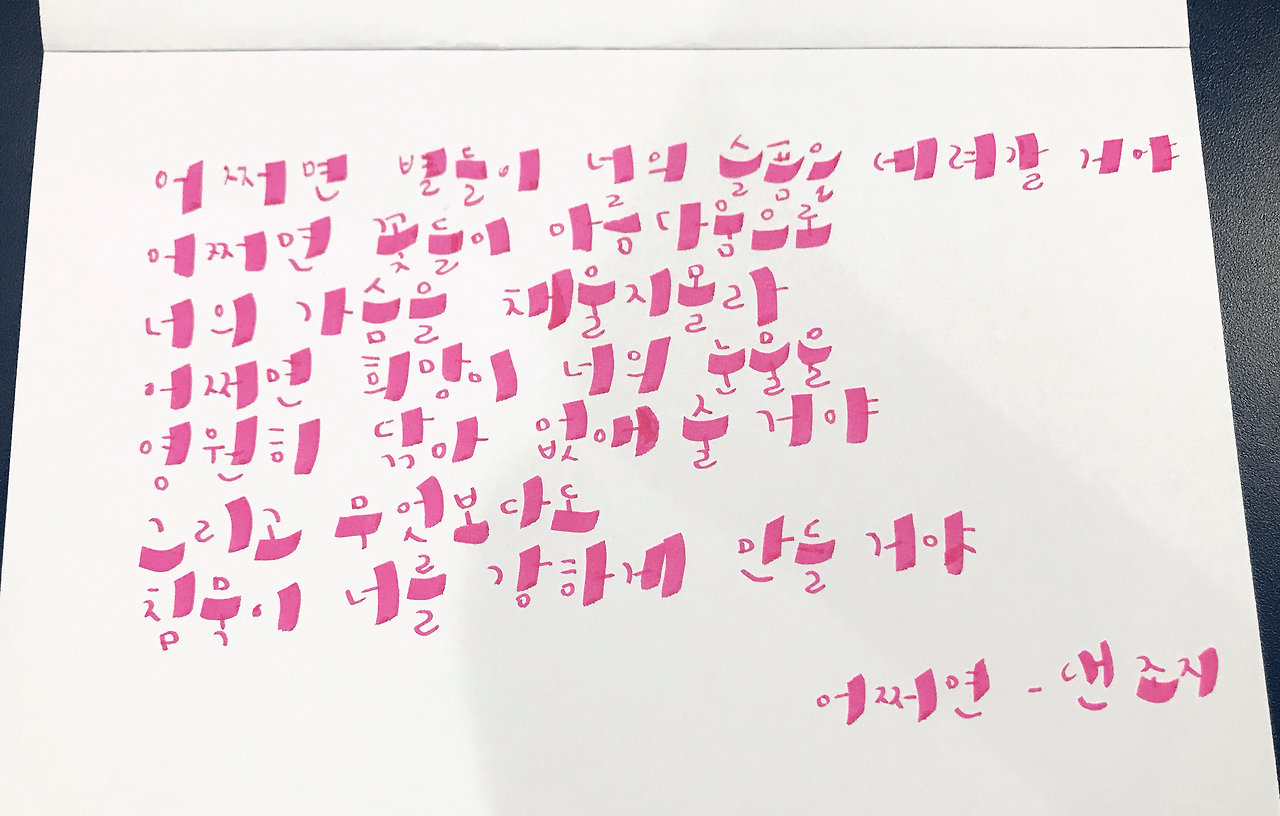 어쩌면 별들이 너의 슬픔을 데려갈 거야
어쩌면 꽃들이 아름다움으로
너의 가슴을 채울지 몰라
어쩌면 희망이 너의 눈물을
영원히 닦아 없애 줄 거야
그리고 무엇보다도
침묵이 너를 강하게 만들 거야
어쩌면 - 댄 조지